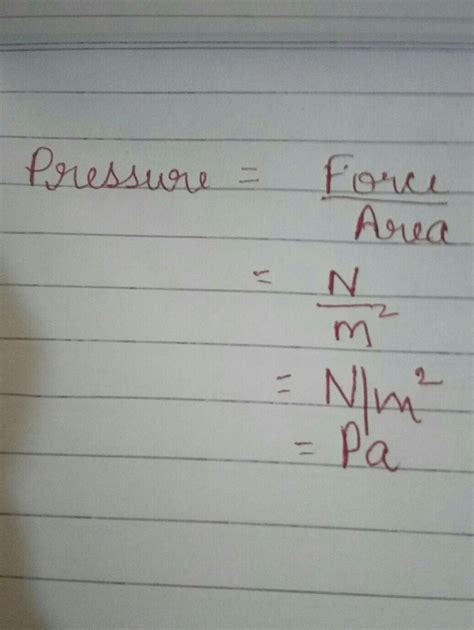 Pressure = Force
Area
= N
m²
= N/m²
= Pa